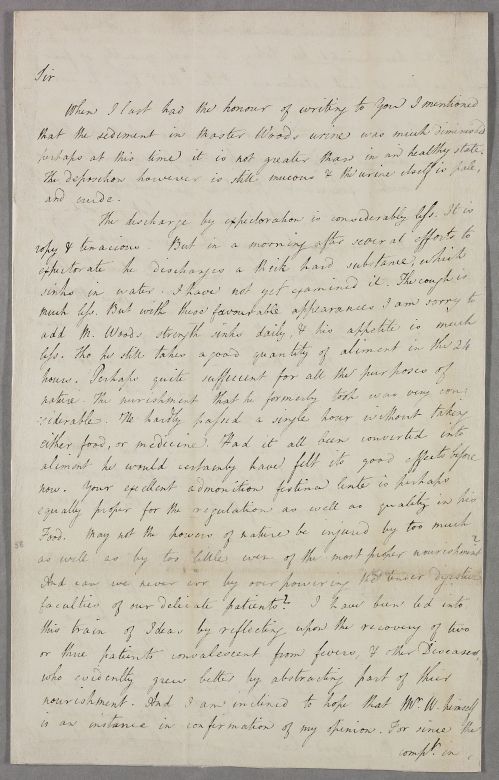 Sir
When I last had the honour of writing to You I mentioned
that the sediment in Master Woods urine was much diminished
perhaps at this time it is not greater than in an healthy state.
The deposition however is still mucous & the urine itself is pale,
and crude.
The discharge by expectoration is considerably less. It is
ropy & tenacious. But in a morning after several efforts to
expectorate he discharges a thick hard substance, which
sinks in water. I have not yet examined it. The cough is
much less. But with these favourable appearances I am sorry to
add Mr. Woods strength sinks daily, & his appetite is much
less. tho he still takes a good quantity of aliment in the 24
hours. Perhaps quite sufficient for all the purposes of
nature. The nourishment that he formerly took was very con-
:siderable. He hardly passed a single hour without taking
either food, or medicine. Had it all been converted into
aliment he would certainly have felt its good effects before
now. Your excellent admonition festina lente is perhaps
equally proper for the regulation as well as quality in his
Food. May not the powers of nature be injured by too much
as well as by too little even of the most proper nourishment?
And can we never err by over powering the tender digestive
faculties of our delicate patients? I have been led into
this train of Ideas by reflecting upon the recovery of two
or three patients convalescent from fevers, & other Diseases,
who evidently grew better by abstracting part of their
nourishment. And I am inclined to hope that Mr. W. himself
is an instance in confirmation of my opinion. For since the
compt. in